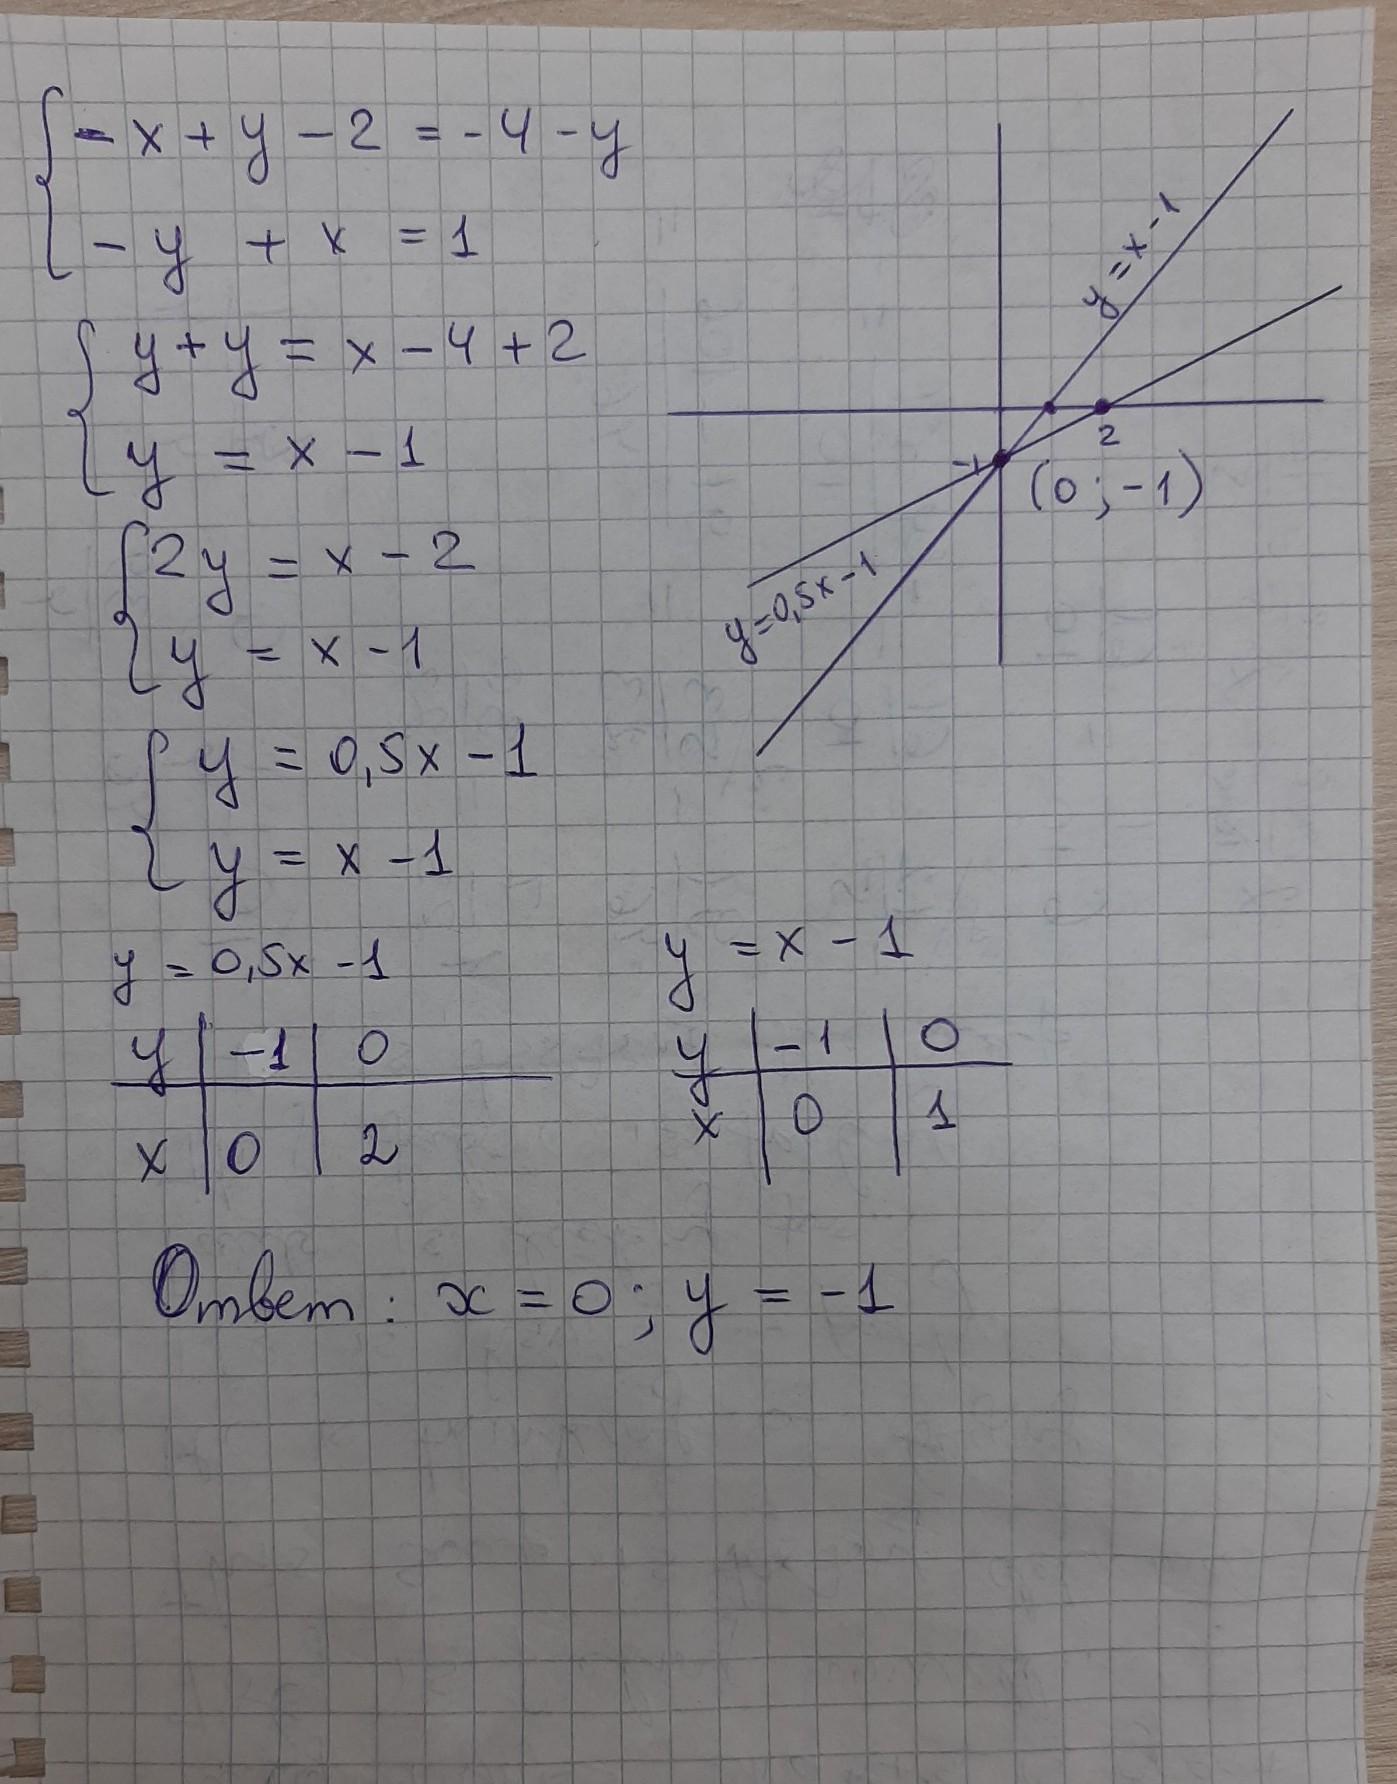 - x + y - 2 = - 4 - y
- y + x = 1
y + y = x - 4 + 2
y = x - 1
2y = x - 2
y = x - 1
y = 0,5x - 1
y = x - 1
y = x - 1
2
-1
(0 ; -1)
y = 0,5x - 1
y = 0,5x - 1
y -1 0
x 0 2
y = x - 1
y -1 0
x 0 1
Ответ: x = 0; y = -1